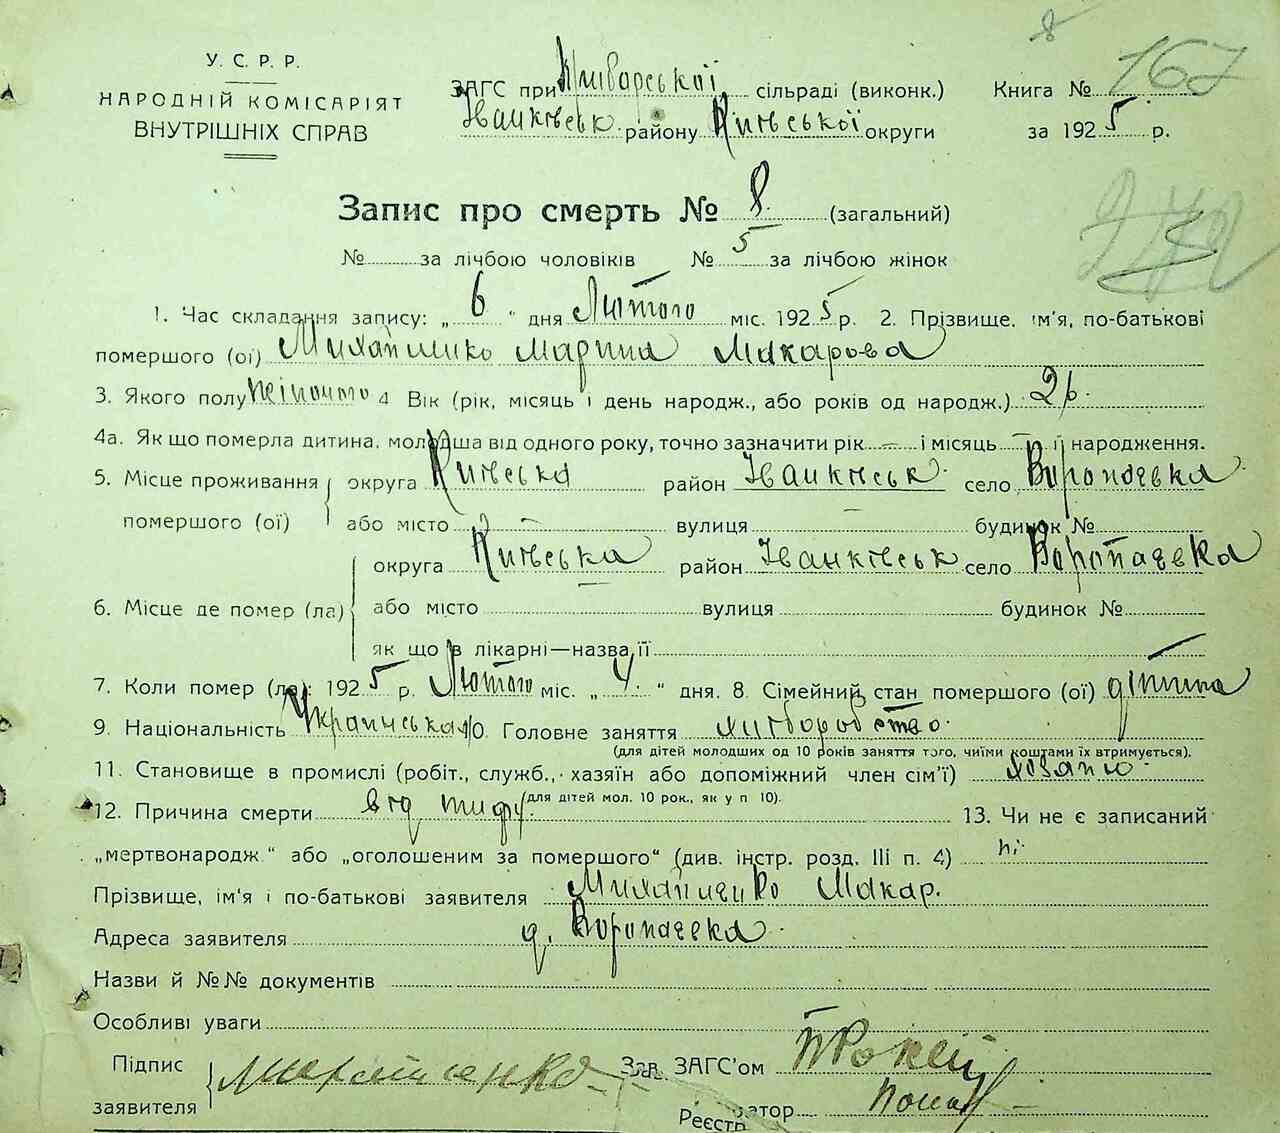 У. С. Р. Р.
НАРОДНІЙ КОМІСАРІЯТ
ВНУТРІШНІХ СПРАВ
ЗАГС при сільраді (виконк.)
Іванківськ району Київської округи
Книга № 167
за 1925 р.
Запис про смерть № 8 (загальний)
№ за лічбою чоловіків № 5 за лічбою жінок
1. Час складання запису: „ 6 " дня Лютого міс. 1925 р. 2. Прізвище, ім'я, по-батькові
помершого (ої) Михайленко Марина Макарова
3. Якого полу жіночого 4 Вік (рік, місяць і день народж., або років од народж.) 2 р.
4а. Як що померла дитина, молодша від одного року, точно зазначити рік — і місяць — її народження.
5. Місце проживання округа Київська район Іванківськ село Воропаевка
помершого (ої) або місто — вулиця — будинок №
округа Київська район Іванківськ село Воропаевка
6. Місце де помер (ла) або місто — вулиця будинок №
як що в лікарні—назва її
7. Коли помер (ла): 1925 р. Лютого міс. „ 4 " дня. 8. Сімейний стан помершого (ої) дітина
9. Національність Українська 10. Головне заняття хліборобство
(для дітей молодших од 10 років заняття того, чиїми коштами їх втримується).
11. Становище в промислі (робіт., служб., хазяїн або допоміжний член сім'ї)
(для дітей мол. 10 рок., як у п 10).
12. Причина смерти від тифу 13. Чи не є записаний
„мертвонародж." або „оголошеним за помершого" (див. інстр. розд. III п. 4) ні
Прізвище, ім'я і по-батькові заявителя Михайленко Макар.
Адреса заявителя д. Воропаевка
Назви й №№ документів
Особливі уваги
Підпис заявителя Михайленко Зав. ЗАГС'ом
Реєстратор